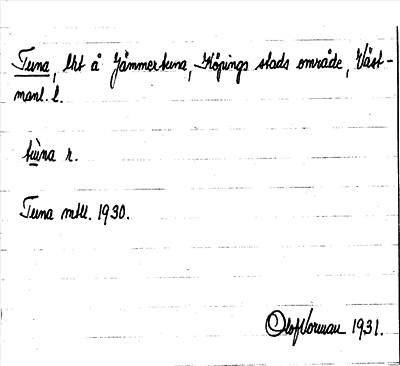 Tuna, lht å Jämmertuna, Köpings stads område, Väst-
manl. l.
tùna r.
Tuna mtll. 1930.
Olof Norman 1931.